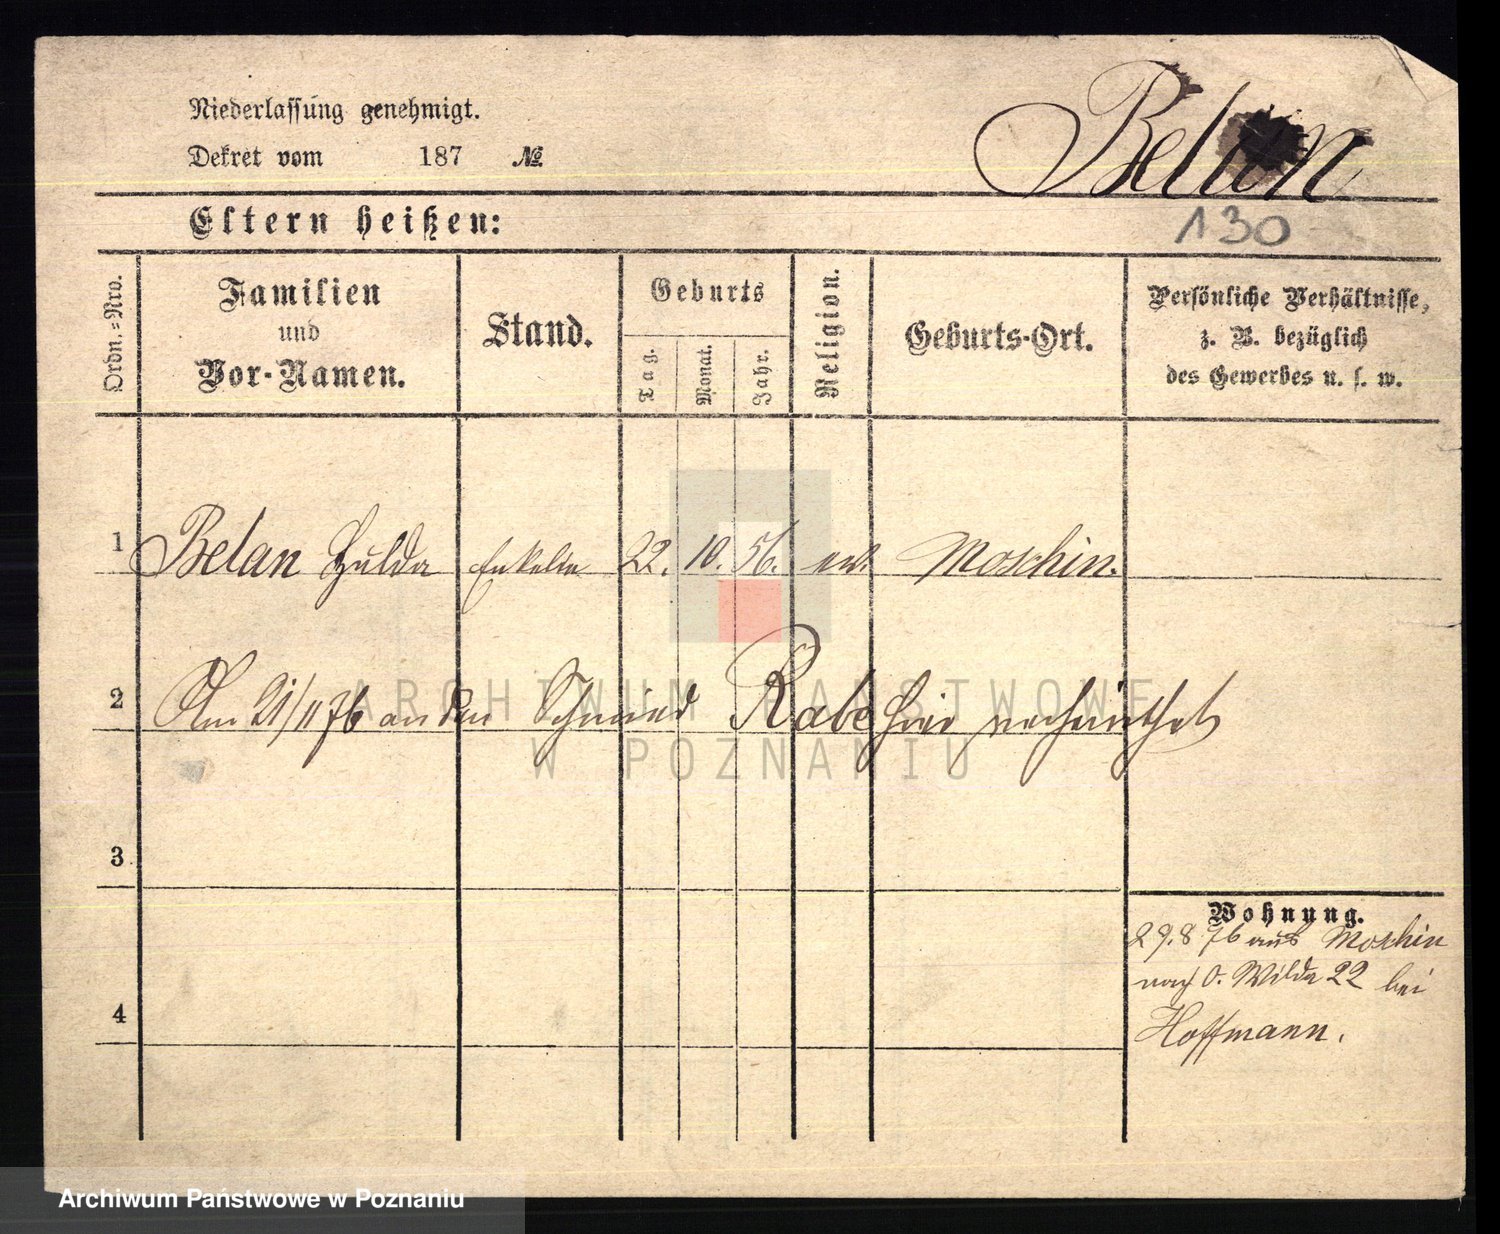 Niederlassung genehmigt.
Dekret vom 187 №
Belan
130
Eltern heißen:
Ordn.-Nro.
Familien
und
Vor-Namen.
Stand.
Geburts
Tag.
Monat.
Jahr.
Religion.
Geburts-Ort.
Persönliche Verhältnisse,
z. B. bezüglich
des Gewerbes u. s. w.
1 Belan Hulda 22. 10. 56. ev. Moschin.
2 Am 21/11 76 an den Schmied Rabe hier verheirathet
ARCHIWUM PAŃSTWOWE
W POZNANIU
3
4
Wohnung.
29.8 76 aus Moschin
nach O. Wilda 22 bei
Hoffmann.
Archiwum Państwowe w Poznaniu